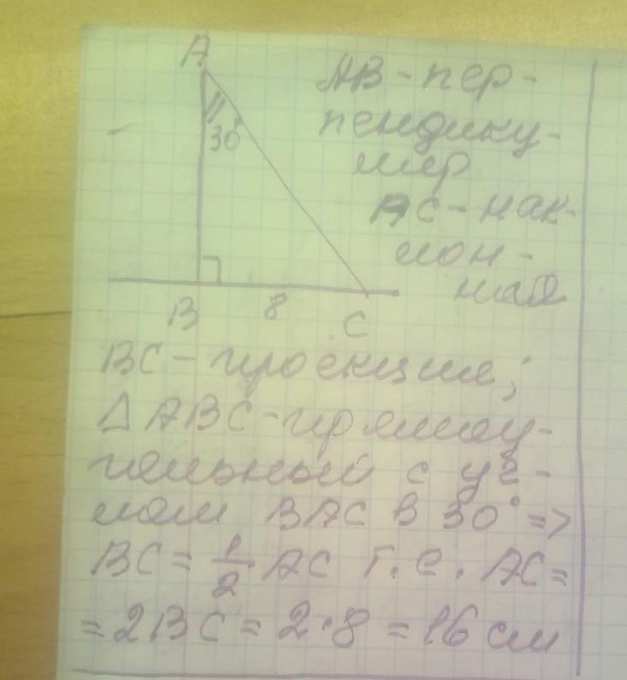 A
AB - пер-
пендику-
ляр
30°
AC - нак-
лон-
ная
B 8 C
BC - проекция;
△ABC - прямоу-
гольный с уг-
лом BAC в 30° =>
BC = 1/2 AC т.е. AC =
= 2BC = 2·8 = 16 см